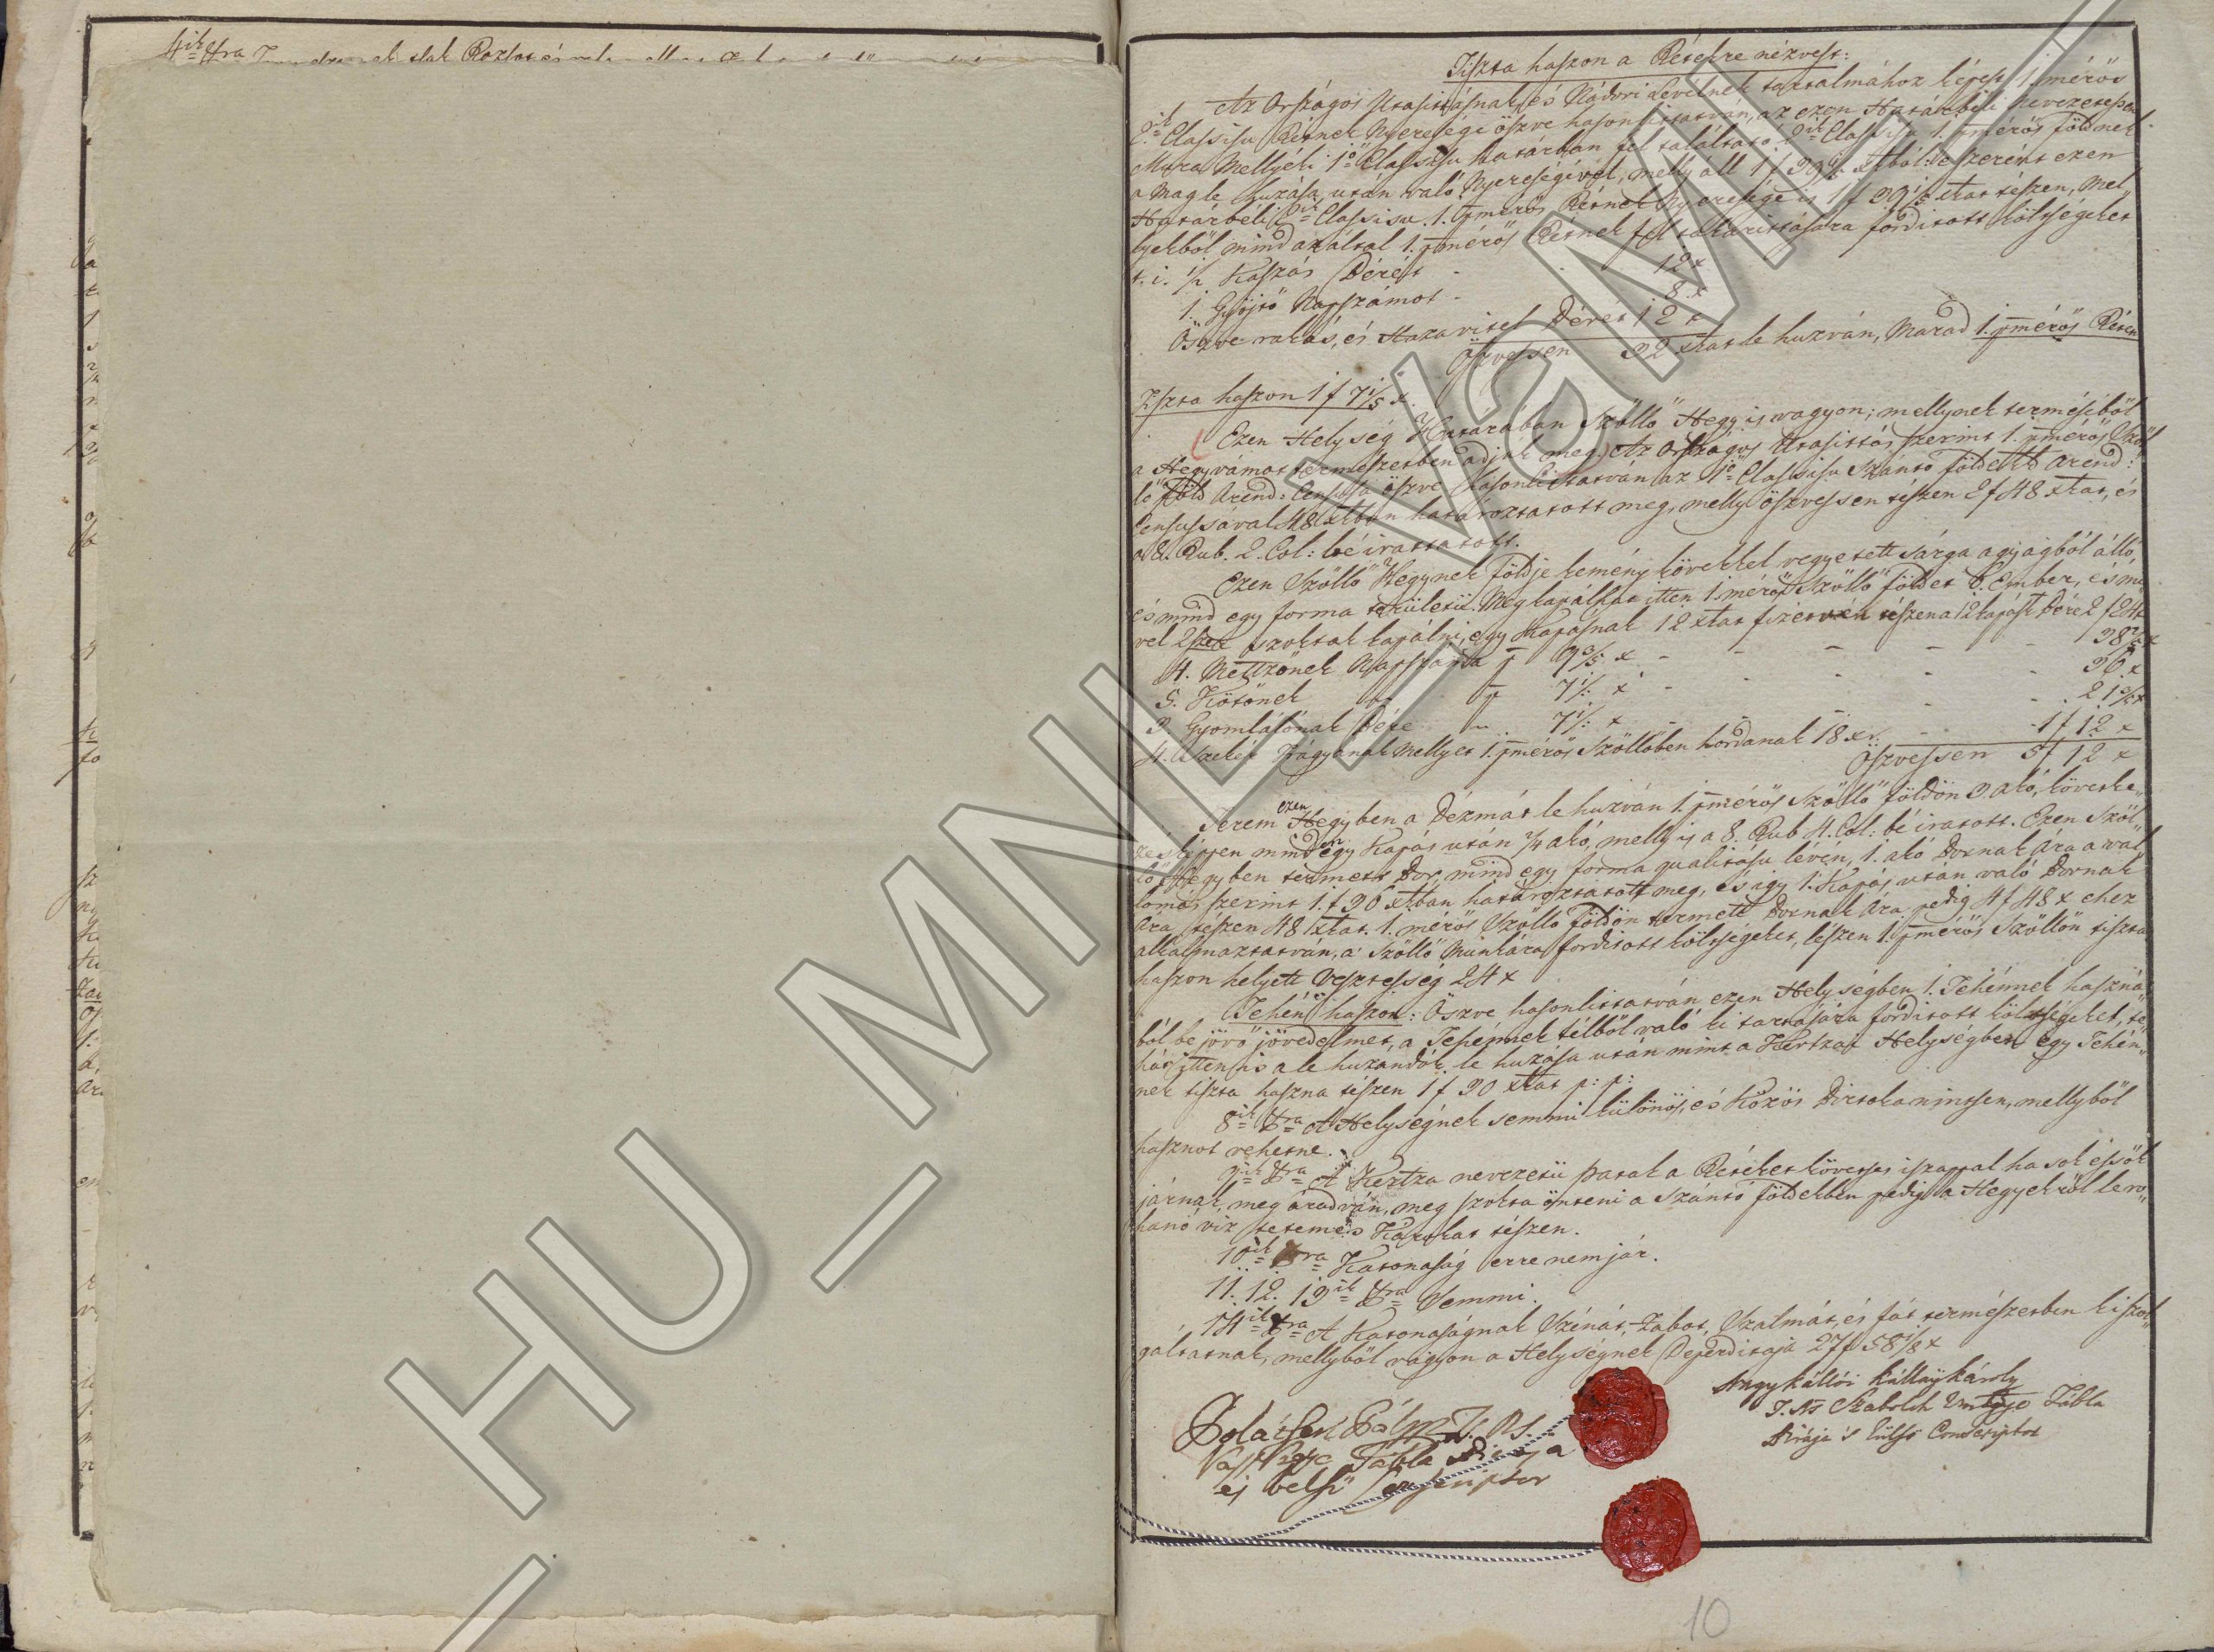 4ik
Tiszta haszon a Rétekre nézvest:
Az Országos Utasitásnak, és Nádori Levélnek tartalmához képest 1. mérös
2ik Classisu Rétnek Nyeresége öszve hasonlittatván, az ezen Határbéli nevezetessen
Mura Mellyéki 1ső Classisu határban fel találtató 2ik Classisu 1. pmérös földnek
a Mag le huzása után való Nyereségével, melly áll 1 f 39 xkból: e szerént ezen
Határbéli 2ik Classisu 1. pmérös Rétnek Nyeresége is 1 f 39 1/5 xkat tészen, Mel„
lyekböl mind azáltal 1. pmérös Rétnek fel takarittására forditott költségeket
t. i. 1/2 Kaszás Bérét - 12 x
1. Gyöjtö Napszámot - 8 x
Öszve rakás, és Haza vitel Bérét 12 x
Öszvessen 32 xkat le huzván, Marad 1. pmérös Réten
Tiszta haszon 1 f 7 1/5 x.
Ezen Helység Határában Szöllö Hegy is vagyon; mellynek terméséböl
a Hegyvámot természetben adják meg. Az Országos Utasittás szerint 1. pmérös Szöl
lö föld Arend: Censusa öszve hasonlittatván az 1ső Classisu Szántó földek Arend:
Censussával 48 xkban határoztatott meg, melly öszvessen tészen 2 f 48 xkat, és
a 8. Rub. 2. Col: béirattatott.
Ezen Szöllö Hegynek földje kemény kövekkel vegyetett sárga agyagból álló,
és mind egy forma területü. Meg kapálhat itten 1. mérös Szöllö földet 6. Ember, és mi„
vel 2szer szoktak kapálni, egy Kapásnak 12 xkat fizetvén tészen a 12 kapás Bére 2 f 24 x
4. Mettzönek Napszáma p 9 3/5 x - 38 2/5 x
5. Kötönek p 7 1/5 x - 36 x
3. Gyomlálónak Bére 7 1/5 x - 21 3/5 x
4. Szekér Trágyának mellyet 1. pmérös Szöllöben hordanak 18 x - 1 f 12 x
Öszvessen 5 f 12 x
Terem ezen Hegyben a Dézmát le huzván 1. pmérös Szöllö földön 3. akó, követke„
zésképpen minden egy Kapás után 1/4 akó, melly is a 8. Rub 4. Col: béiratott. Ezen Szöl„
lö Hegyben termett Bor, mind egy forma qualitásu lévén, 1. akó Bornak Ára a val„
lomás szerint 1. f 36 xkban határoztatott meg, és igy 1. Kapás után való Bornak
Ára tészen 48 xkat. 1. mérös Szöllö földön termett Bornak Ára pedig 4 f 48 x ehez
alkalmaztatván, a Szöllö Munkára forditott költségeket, lészen 1. pmérös Szöllön tiszta
haszon helyett Vesztesség 24 x
Tehén haszon: Öszve hasonlittatván ezen Helységben 1. Tehénnek haszná„
ból bejövö jövedelmet, a Tehénnek télböl való ki tartására forditott költségeket, te„
hát itten is a le huzandók le huzása után mint a Kertzai Helységben egy Tehén„
nek tiszta haszna tészen 1 f 30 xkat p: p:
8ik Xra A Helységnek semmi különös, és Közös Birtoka nintsen, mellyböl
hasznot vehetne.
9ik Xra A Kertza nevezetü Patak a Réteket kövessen iszappal ha sok essök
járnak, meg áradván, meg szokta önteni a Szántó földekben pedig a Hegyekröl le ro„
hanó viz tetemes Károkat tészen.
10ik Xra Katonaság erre nem jár.
11. 12. 13ik Xra Semmi.
14ik Xra A Katonaságnak Szénát, Zabot, Szalmát, és fát természetben ki szol„
gáltatnak, mellyböl vagyon a Helységnek Deperditaja 27 f 58 1/8 x
Nagykállói Kállay Károly
T. Ns Szabolch Vmgye Tábla
Birája 's külsö Conscriptor
Vass Vgye Tábla Birája
és belsö Conscriptor
10
HU_MNL_VaML